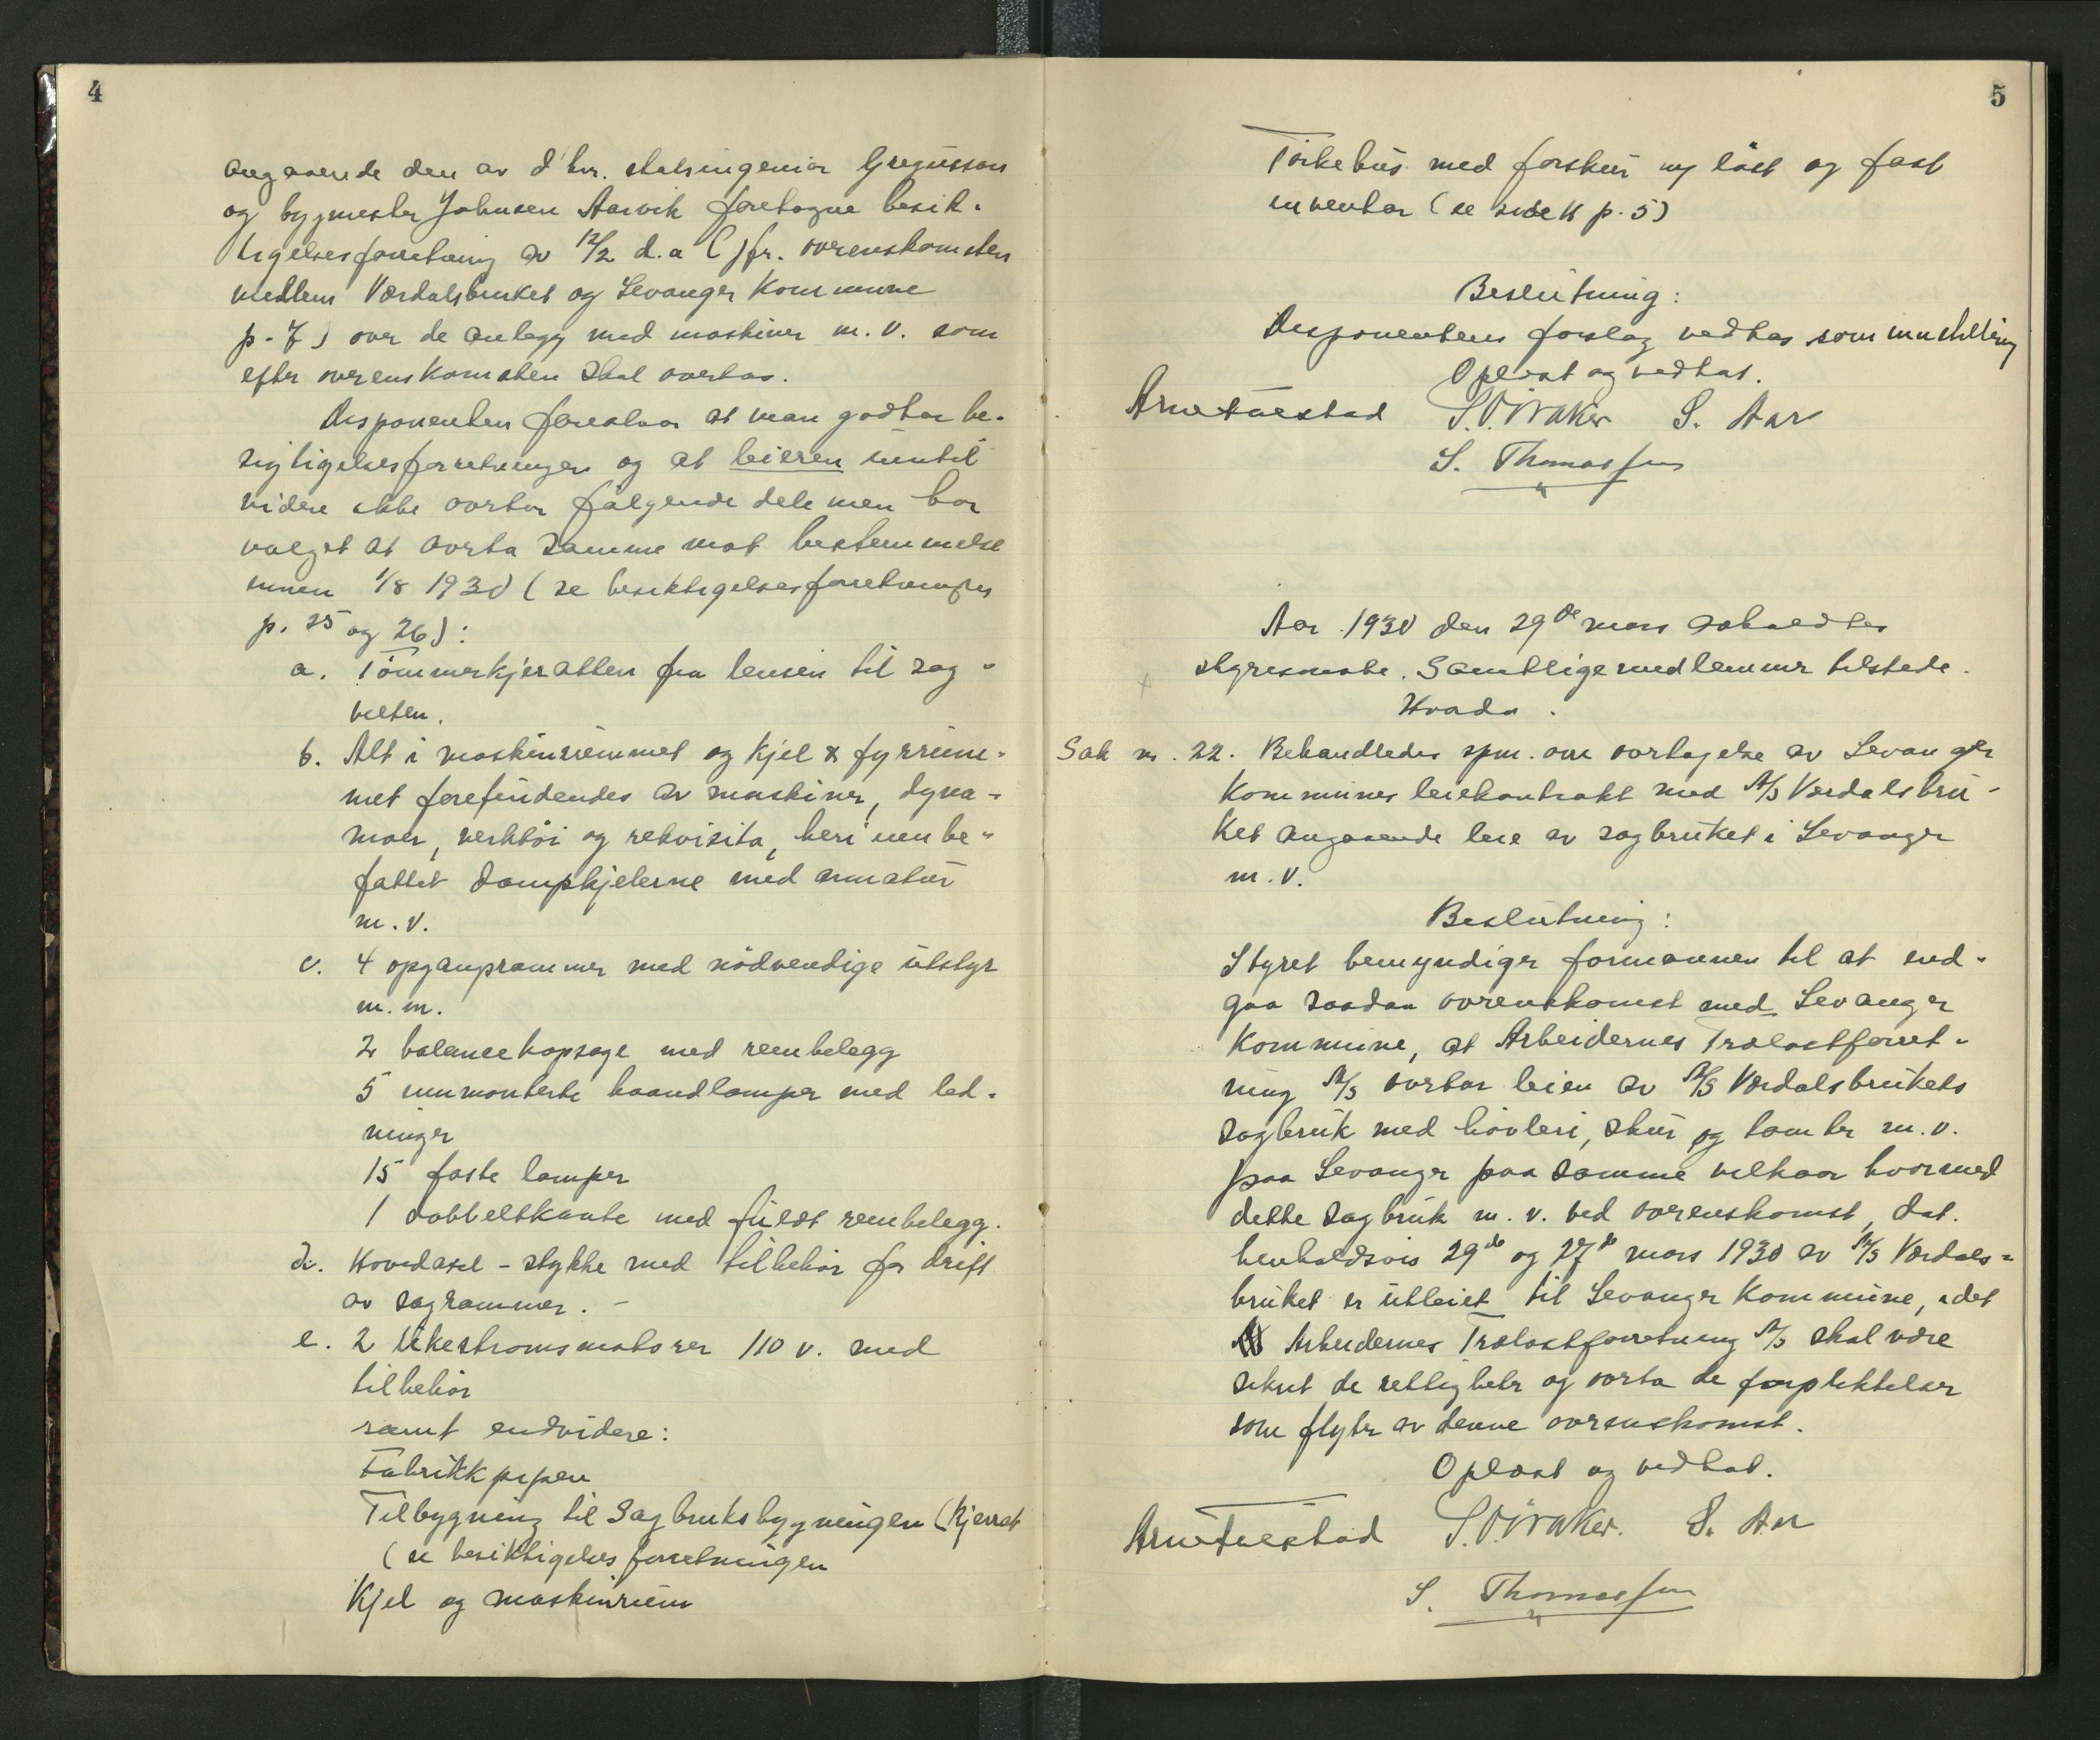 4
angaaende den av d'hr. statsingeniør Gregusson
og bygmester Johnsen Aarvik foretagne besik-
tigelsesforretning av 12/2 d.a. (jfr. overenskomsten
mellem Værdalsbruket og Levanger Kommune
p. 7) over de anlegg med maskiner m.v. som
efter overenskomsten skal overtas.
Disponenten foreslaar at man godtar be-
sigtigelsesforretningen og at leieren inntil
videre ikke overtar følgende dele men har
valget at overta samme mot bestemmelse
innen 1/8 1930 (se besiktigelsesforretningen
p. 25 og 26):
a. Tømmerkjeratten fra lensen til sag-
velten.
b. Alt i maskinrummet og kjel & fyrrum-
met forefindendes av maskiner, dyna-
moer, verktøi og rekvisita, heri innbe-
fattet dampkjelerne med armatur
m.v.
c. 4 opgangrammer med nødvendige utstyr
m.m.
2 balancekapsage med rembelegg
5 ummonterte haandlamper med led-
ninger
15 faste lamper
1 dobbeltkante med fuldt rembelegg.
d. Hovedaxel-stykke med tilbehør for drift
av sagrammer. -
e. 2 likestrømsmotorer 110 v. med
tilbehør
samt endvidere:
Fabrikkpipen
Tilbygning til Sagbruksbygningen (kjerrat
(se besiktigelsesforretningen
Kjel og maskinrum
5
Tørkehus med forskur og løst og fast
inventar (se side p. 5)
Beslutning:
Disponentens forslag vedtas som innstilling
Oplæst og vedtat.
Arne Falstad S.O. Øraker S. Aar
S. Thomassen
Aar 1930 den 29de mars avholdtes
styresmøte. Samtlige medlemmer tilstede.
Hvada.
Sak nr. 22. Behandledes spm. om overtagelse av Levanger
Kommunes leiekontrakt med A/S Værdalsbru-
ket angaaende leie av sagbruket i Levanger
m.v.
Beslutning:
Styret bemyndiger formannen til at ind-
gaa saadan overenskomst med Levanger
Kommune, at Arbeidernes Trælastforret-
ning A/S overtar leien av A/S Værdalsbrukets
Sagbruk med høvleri, skur og tomter m.v.
paa Levanger paa samme vilkaar hvormed
dette Sagbruk m.v. ved overenskomst, dat.
henholdsvis 29de og 27de mars 1930 av A/S Værdals-
bruket er utleiet til Levanger Kommune, idet
Arbeidernes Trælastforretning A/S skal være
sikret de rettigheter og overta de forpliktelser
som flyter av denne overenskomst.
Oplæst og vedtat.
Arne Falstad S.O. Øraker. S. Aar
S. Thomassen